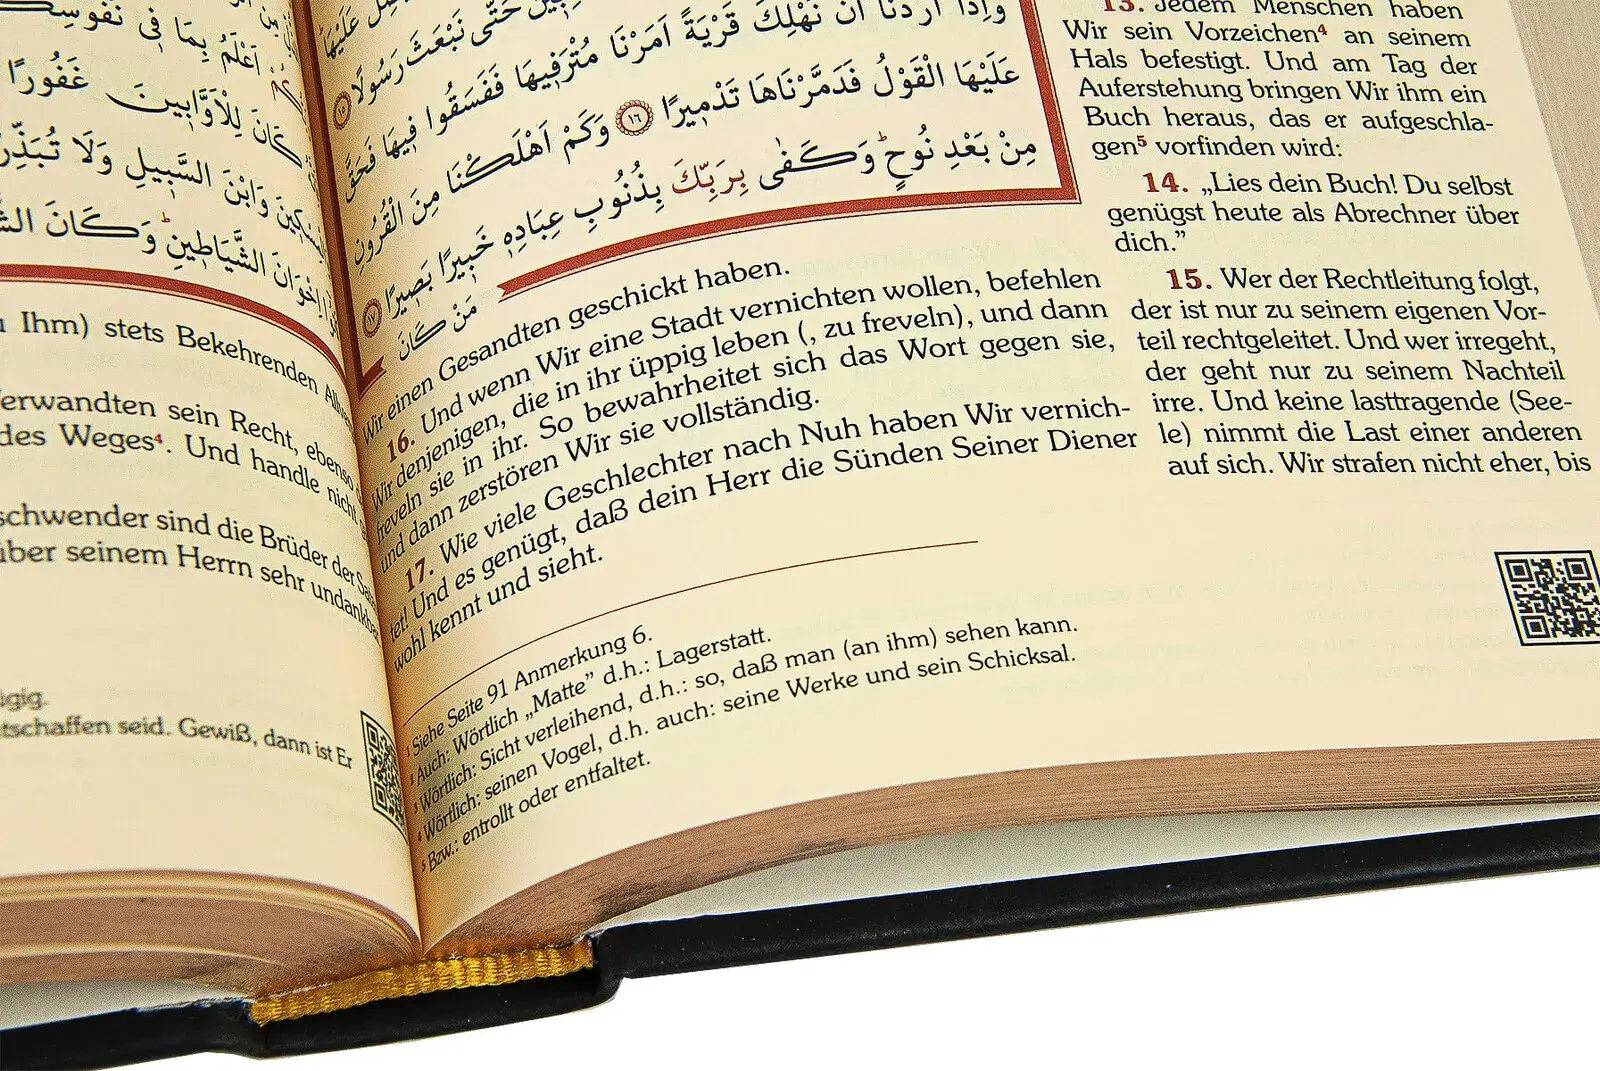 اَعْلَمُ بِمَا فٖى نُفُوسِكُ
كَانَ لِلْاَوَّابٖينَ غَفُورًا
وَابْنَ السَّبٖيلِ وَلَا تُبَذِّرْ
اِخْوَانَ الشَّيَاطٖينِ وَكَانَ
Ihm) stets Bekehrenden
erwandten sein Recht, ebenso
des Weges⁴. Und handle nicht
schwender sind die Brüder der
über seinem Herrn sehr undankbar
gig.
tschaffen seid. Gewiß, dann ist Er
حَتّٰى نَبْعَثَ رَسُولًا ١٥
وَاِذَا اَرَدْنَا اَنْ نُهْلِكَ قَرْيَةً اَمَرْنَا مُتْرَفٖيهَا فَفَسَقُوا فٖيهَا فَحَقَّ
عَلَيْهَا الْقَوْلُ فَدَمَّرْنَاهَا تَدْمٖيرًا ١٦ وَكَمْ اَهْلَكْنَا مِنَ الْقُرُونِ
مِنْ بَعْدِ نُوحٍ وَكَفٰى بِرَبِّكَ بِذُنُوبِ عِبَادِهٖ خَبٖيرًا بَصٖيرًا ١٧
مَنْ كَانَ
13. Jedem Menschen haben
Wir sein Vorzeichen⁴ an seinem
Hals befestigt. Und am Tag der
Auferstehung bringen Wir ihm ein
Buch heraus, das er aufgeschla-
gen⁵ vorfinden wird:
14. „Lies dein Buch! Du selbst
genügst heute als Abrechner über
dich.”
15. Wer der Rechtleitung folgt,
der ist nur zu seinem eigenen Vor-
teil rechtgeleitet. Und wer irregeht,
der geht nur zu seinem Nachteil
irre. Und keine lasttragende (See-
le) nimmt die Last einer anderen
auf sich. Wir strafen nicht eher, bis
Wir einen Gesandten geschickt haben.
16. Und wenn Wir eine Stadt vernichten wollen, befehlen
Wir denjenigen, die in ihr üppig leben (, zu freveln), und dann
freveln sie in ihr. So bewahrheitet sich das Wort gegen sie,
und dann zerstören Wir sie vollständig.
17. Wie viele Geschlechter nach Nuh haben Wir vernich-
tet! Und es genügt, daß dein Herr die Sünden Seiner Diener
wohl kennt und sieht.
¹ Siehe Seite 91 Anmerkung 6.
² Auch: Wörtlich „Matte” d.h.: Lagerstatt.
³ Wörtlich: Sicht verleihend, d.h.: so, daß man (an ihm) sehen kann.
⁴ Wörtlich: seinen Vogel, d.h. auch: seine Werke und sein Schicksal.
⁵ Bzw.: entrollt oder entfaltet.